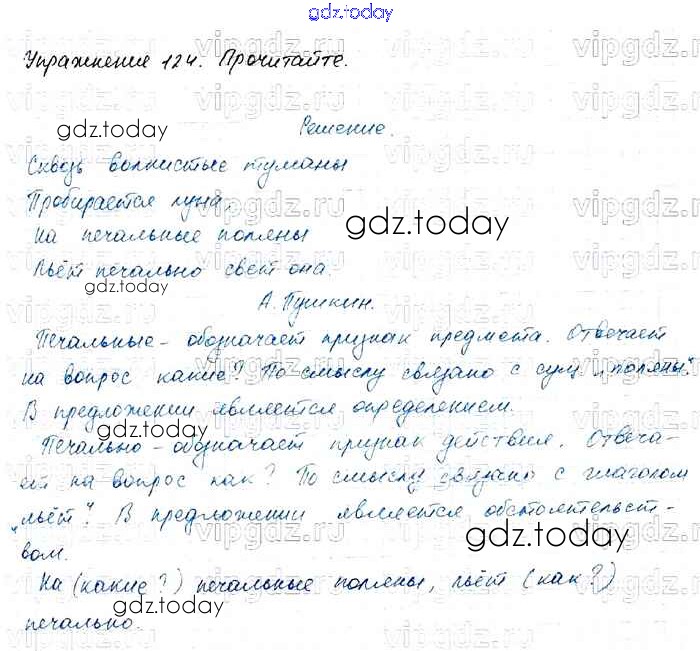 gdz.today
Упражнение 124. Прочитайте.
Решение.
Сквозь волнистые туманы
Пробирается луна,
На печальные поляны
Льёт печально свет она.
А. Пушкин.
Печальные - обозначает признак предмета. Отвечает
на вопрос какие? По смыслу связано с сущ. "поляны".
В предложении является определением.
Печально - обозначает признак действия. Отвеча-
ет на вопрос как? По смыслу связано с глаголом
"льёт". В предложении является обстоятельст-
вом.
На (какие?) печальные поляны, льёт (как?)
печально.